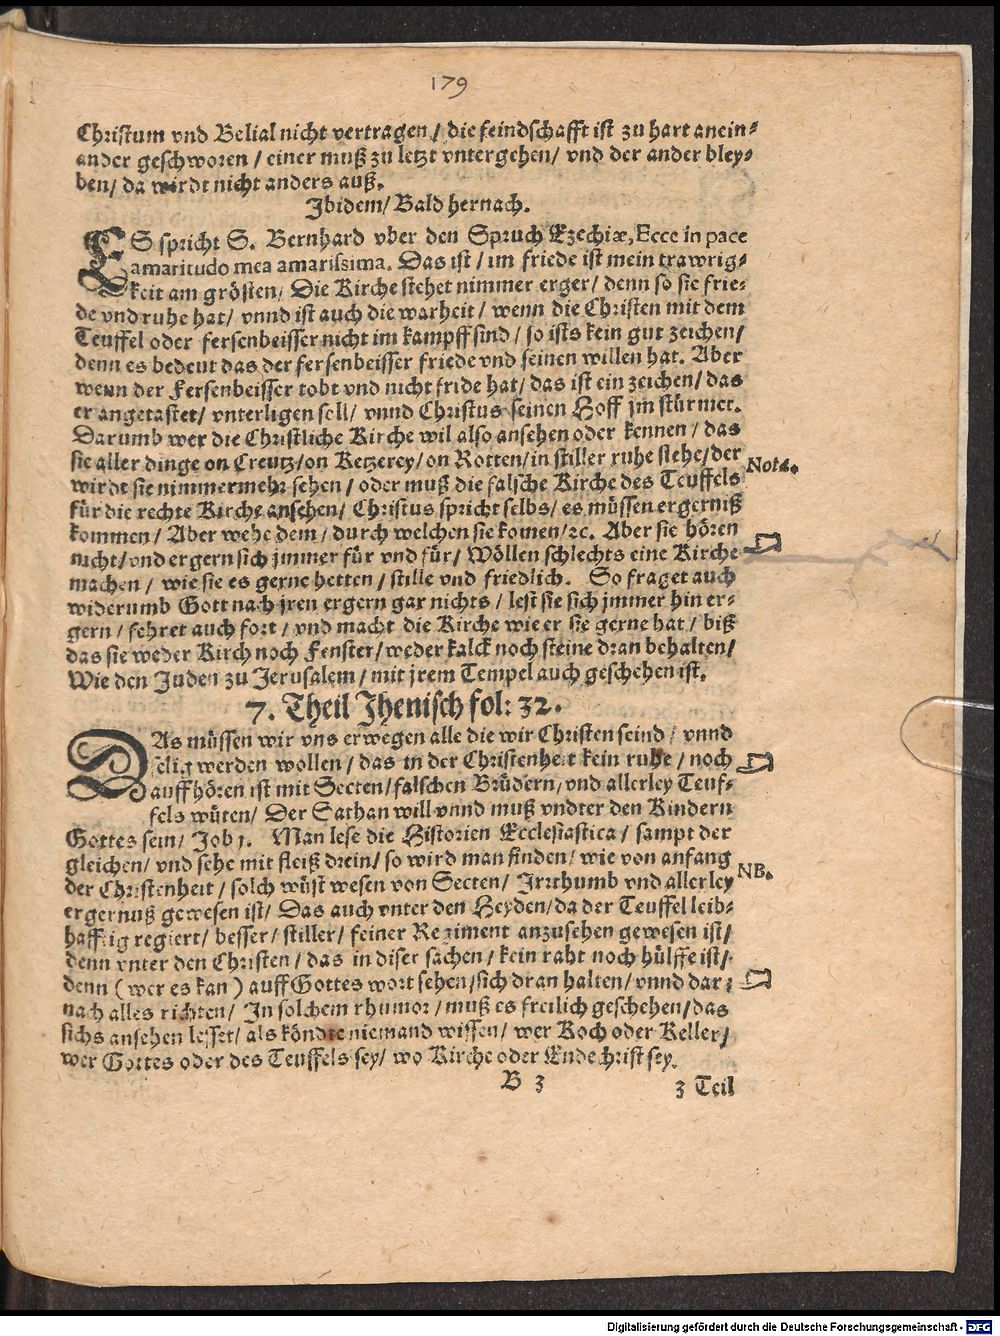 179
Christum vnd Belial nicht vertragen / die feindschafft ist zu hart anein⸗
ander geschworen / einer muß zu letzt vntergehen / vnd der ander bley⸗
ben / da wirdt nicht anders auß.
Ibidem / Bald hernach.
ES spricht S. Bernhard vber den Spruch Ezechiæ, Ecce in pace
amaritudo mea amarissima. Das ist / im friede ist mein trawrig⸗
keit am grösten / Die Kirche stehet nimmer erger / denn so sie frie⸗
de vnd ruhe hat / vnnd ist auch die warheit / wenn die Christen mit dem
Teuffel oder fersenbeisser nicht im kampff sind / so ists kein gut zeichen /
denn es bedeut das der fersenbeisser friede vnd seinen willen hat. Aber
wenn der Fersenbeisser tobt vnd nicht fride hat / das ist ein zeichen / das
er angetastet / vnterligen soll / vnnd Christus seinen Hoff jm stürmet.
Darumb wer die Christliche Kirche wil also ansehen oder kennen / das
sie aller dinge on Creutz / on Ketzerey / on Rotten / in stiller ruhe stehe / der
Nota.
wirdt sie nimmermehr sehen / oder muß die falsche Kirche des Teuffels
für die rechte Kirche ansehen / Christus spricht selbs / es müssen ergerniß
kommen / Aber wehe dem / durch welchen sie komen / ꝛc. Aber sie hören
nicht / vnd ergern sich jmmer für vnd für / Wöllen schlechts eine Kirche
machen / wie sie es gerne hetten / stille vnd friedlich. So fraget auch
widerumb Gott nach jren ergern gar nichts / lest sie sich jmmer hin er⸗
gern / fehret auch fort / vnd macht die Kirche wie er sie gerne hat / biß
das sie weder Kirch noch Fenster / weder kalck noch steine dran behalten /
Wie den Juden zu Jerusalem / mit jrem Tempel auch geschehen ist.
7. Theil Jhenisch fol: 32.
DAs müssen wir vns erwegen alle die wir Christen seind / vnnd
selig werden wollen / das in der Christenheit kein ruhe / noch
auffhören ist mit Secten / falschen Brüdern / vnd allerley Teuf⸗
fels wüten / Der Sathan will vnnd muß vndter den Kindern
Gottes sein / Job 1. Man lese die Historien Ecclesiastica / sampt der
gleichen / vnd sehe mit fleiß drein / so wird man finden / wie von anfang
NB.
der Christenheit / solch wüst wesen von Secten / Irrthumb vnd allerley
ergernuß gewesen ist / Das auch vnter den Heyden / da der Teuffel leib⸗
hafftig regiert / besser / stiller / feiner Regiment anzusehen gewesen ist /
denn vnter den Christen / das in diser sachen / kein raht noch hülffe ist /
denn (wer es kan) auff Gottes wort sehen / sich dran halten / vnnd dar⸗
nach alles richten / In solchem rhumor / muß es freilich geschehen / das
sichs ansehen lesset / als köndte niemand wissen / wer Koch oder Keller /
wer Gottes oder des Teuffels sey / wo Kirche oder Endechrist sey.
B 3
3 Teil
Digitalisierung gefördert durch die Deutsche Forschungsgemeinschaft - DFG